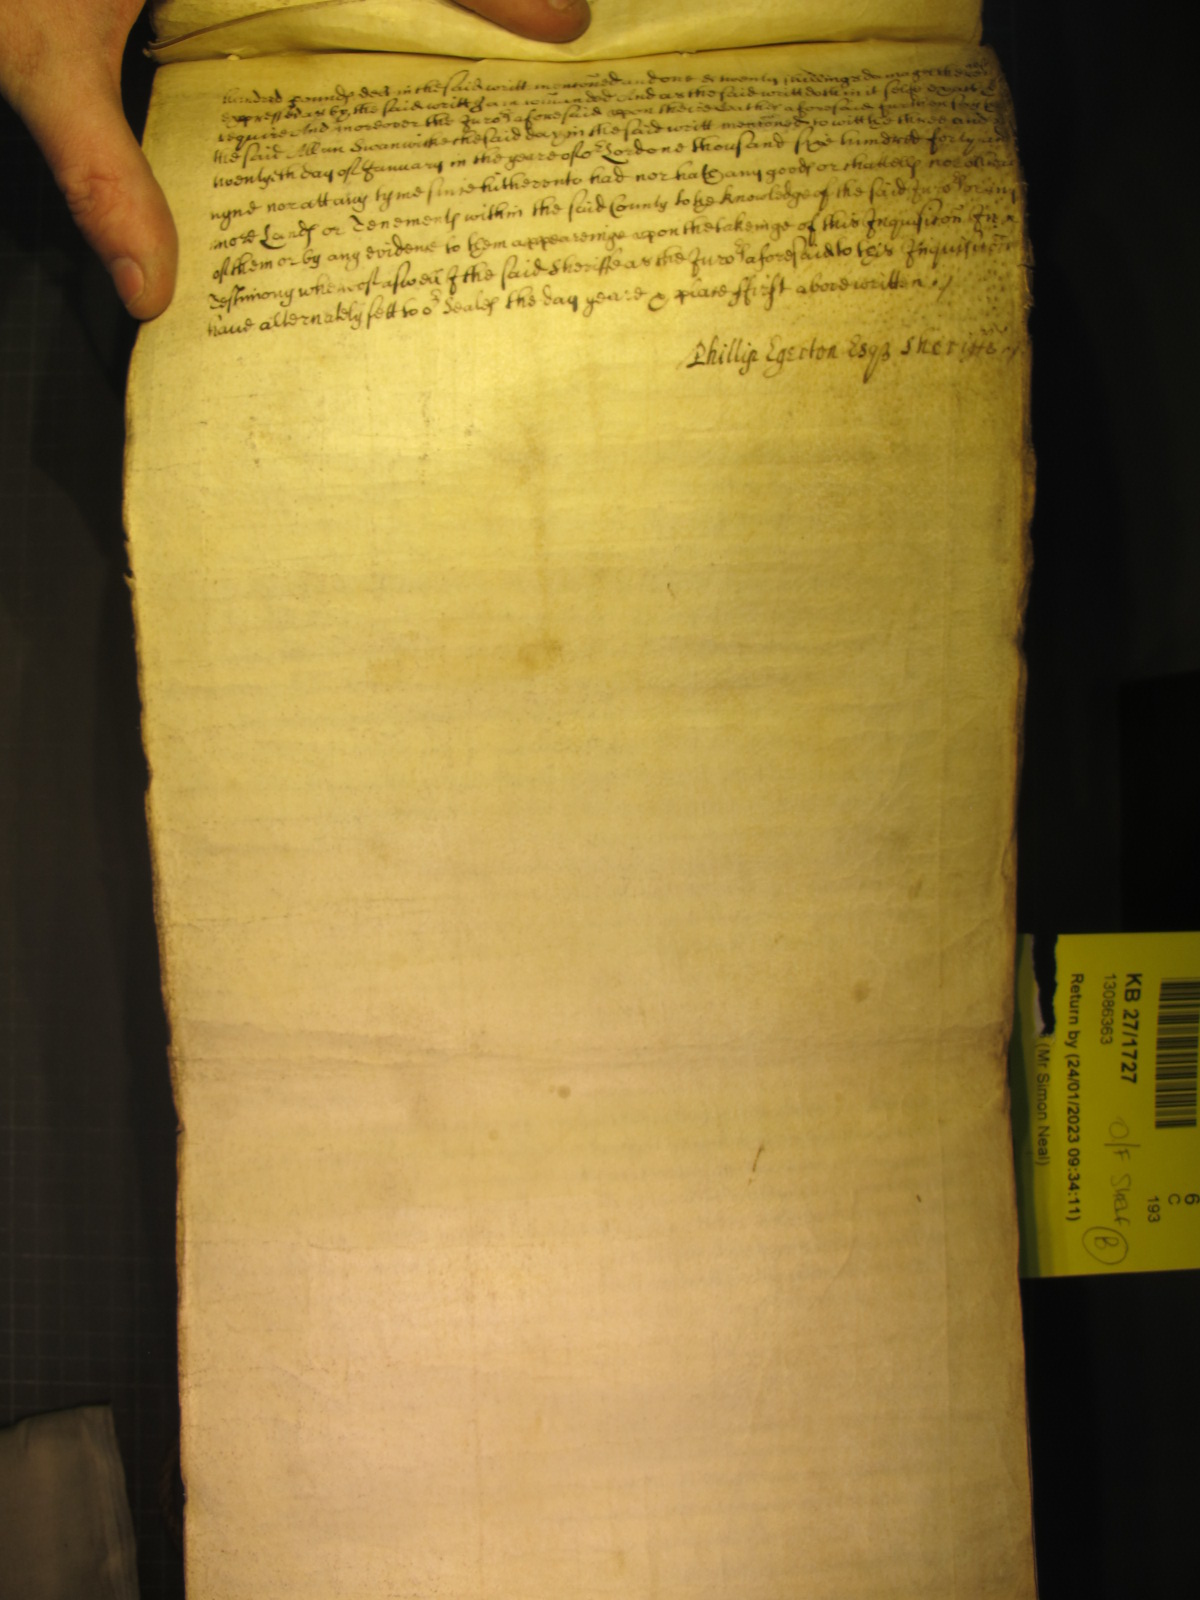 hundred pounds debt in the said writt mentoned and one & twenty shillings damages therein
expressed as by the said writt I am comanded And as the said writt doth in it selfe exact &
require And moreover the Juro:rs aforesaid upon their oathes aforesaid further say
the said Allan Swanwicke the said day in the said writt mentoned to witt the three and
twentyeth day of January in the yeare of o:r Lord one thousand six hundred forty
nyne nor att any tyme since hitherento had nor hath any goods or chattells nor
more Lands or Tenements within the said County to the knowledge of the said Juro:rs or any
of them or by any evidence to them appeareinge upon the takeinge of this Inquisicon In
Testimony whereof aswell I the said Sheriffe as the Juro:rs aforesaid to this Inquisicon
have alternately sett to o:r Seales the day yeare & place ffirst abovewritten
Phillip Egerton Esq Sheriffe
KB 27/1727
13086363
Return by (24/01/2023 09:34:11)
(Mr Simon Neal)
6
C
193
O/F Shelf
B